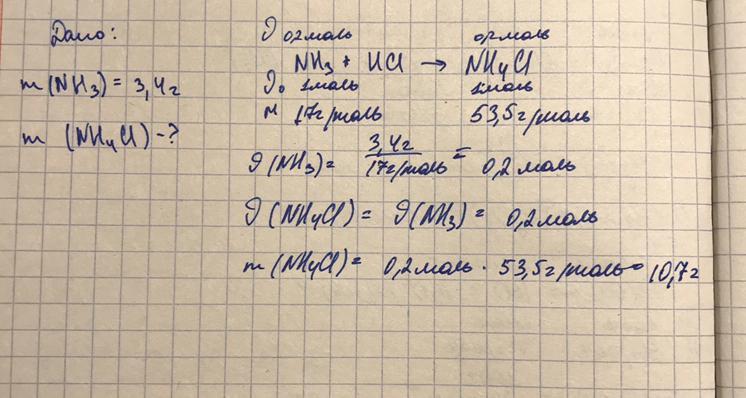 Дано:
m(NH3) = 3,4г
m (NH4Cl) - ?
ϑ 0,2моль 0,2моль
NH3 + HCl → NH4Cl
ϑ0 1моль 1моль
M 17г/моль 53,5г/моль
ϑ(NH3) = 3,4г / 17г/моль = 0,2 моль
ϑ(NH4Cl) = ϑ(NH3) = 0,2моль
m(NH4Cl) = 0,2моль · 53,5г/моль = 10,7г